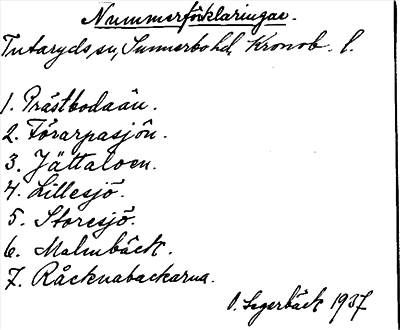 Nummerförklaringar.
Tutaryds sn, Sunnerbo hd. Kronob. l.
1. Prästbodaån.
2. Förarpasjön.
3. Jättaloen.
4. Lillesjö.
5. Storesjö.
6. Malmbäck.
7. Råcknabackarna.
O. Lagerbäck 1937